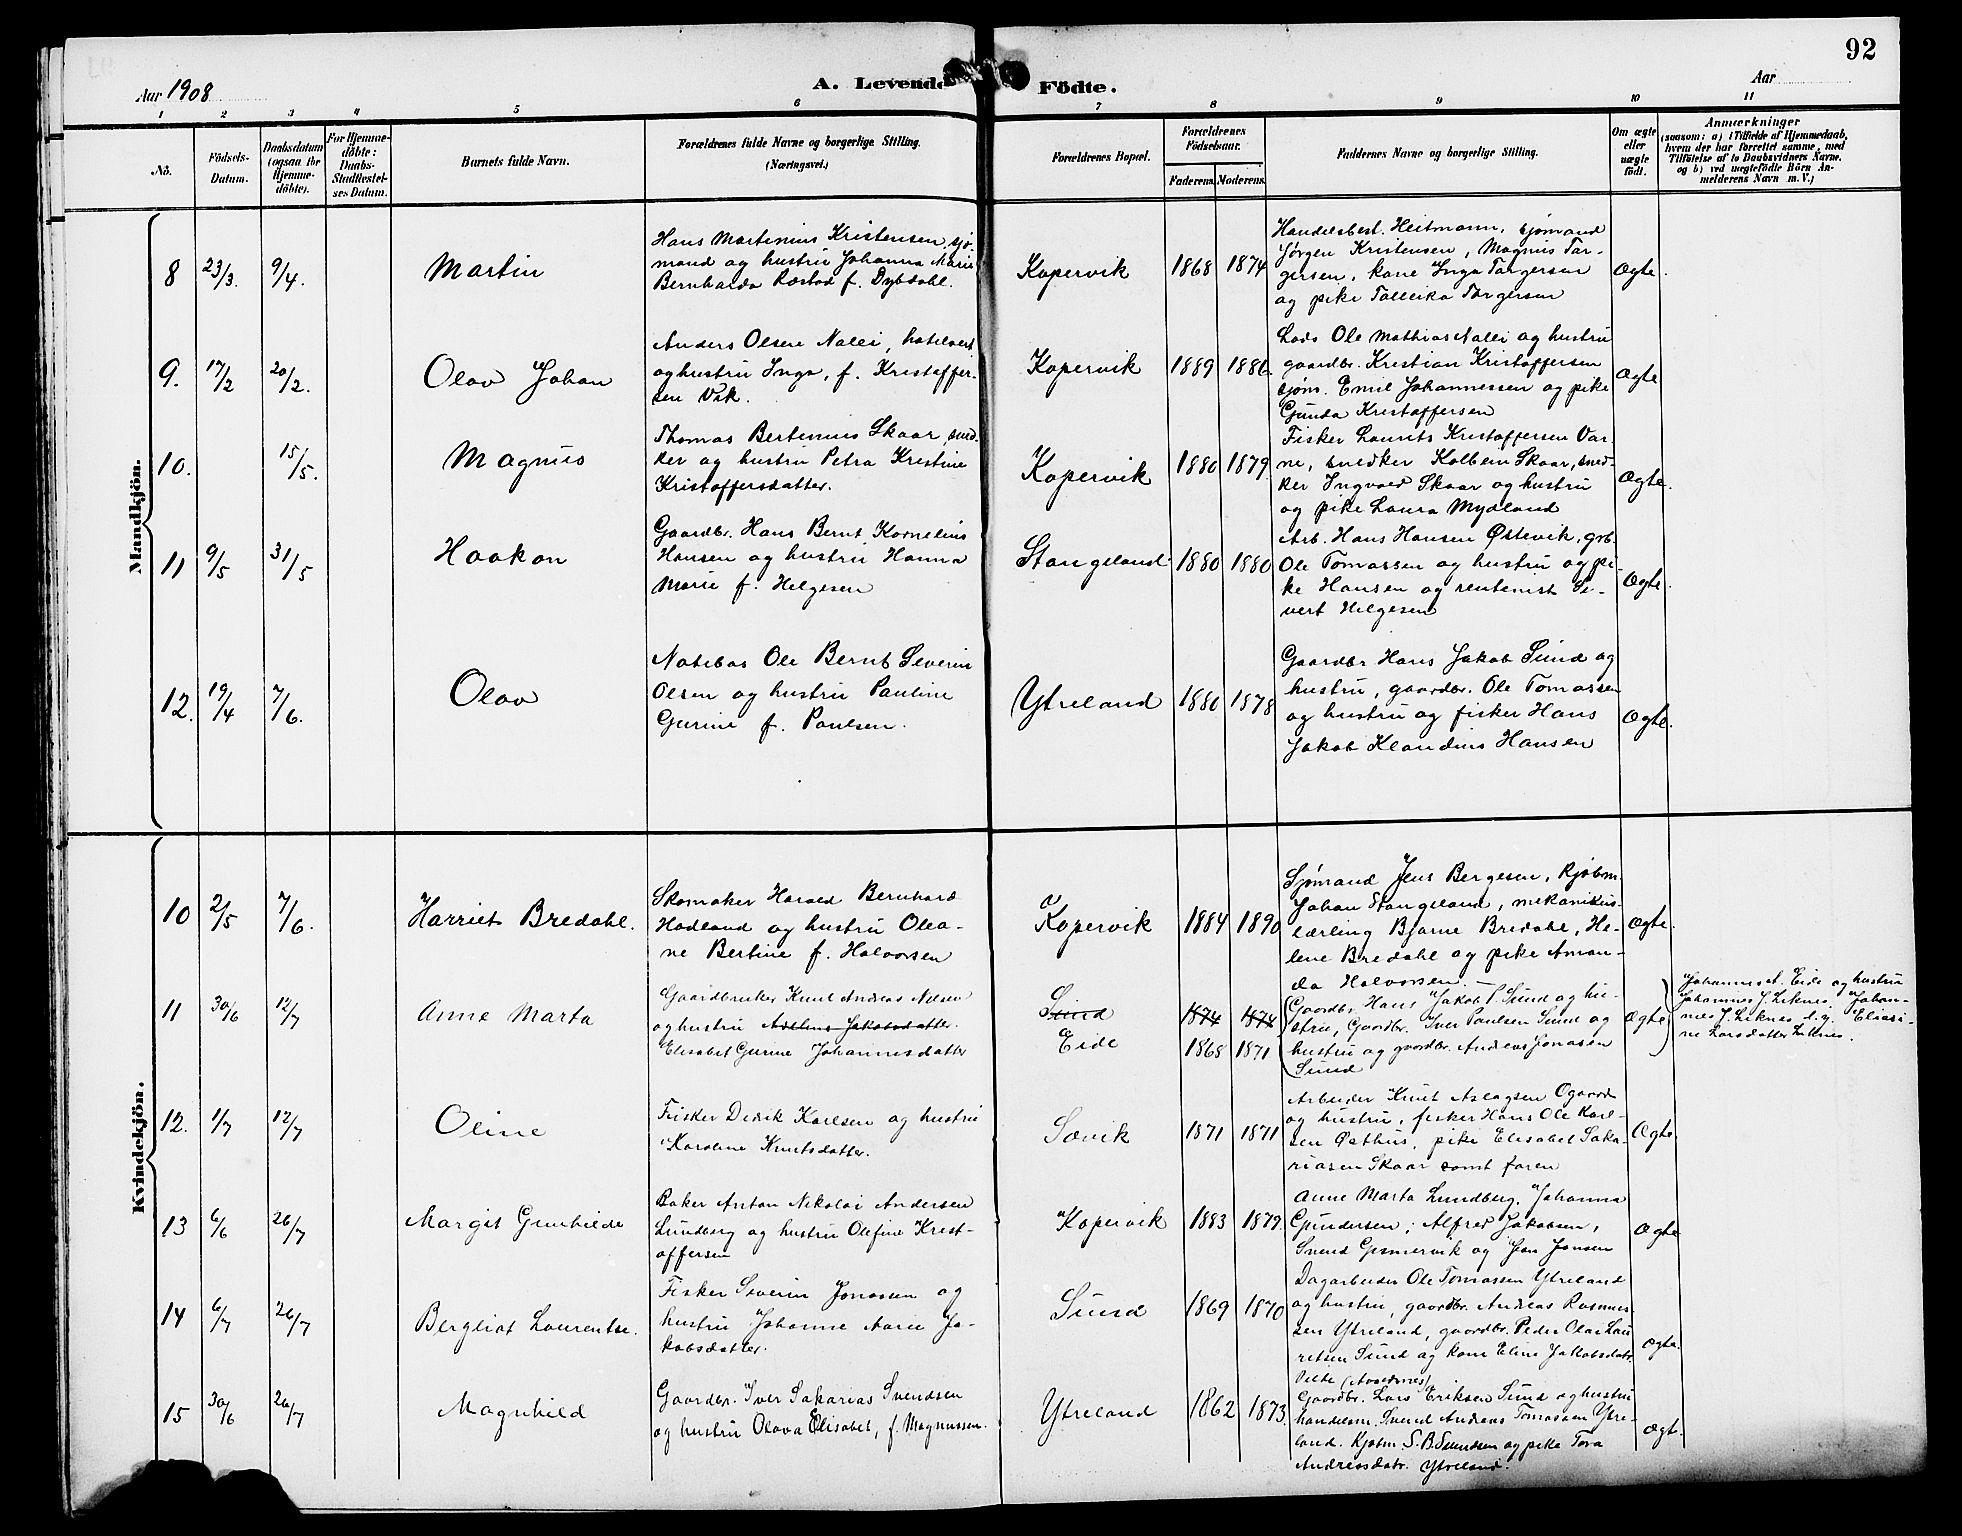 92
Aar 1908
A. Levende Födte.
Aar
1 2 3 4 5 6 7 8 9 10 11
No.
Födsels-
Datum.
Daabsdatum
(ogsaa for
Hjemme-
döbte).
For Hjemme-
döbte:
Daabs-
Stadfæstel-
ses Datum.
Barnets fulde Navn.
Forældrenes fulde Navne og borgerlige Stilling.
(Næringsvei.)
Forældrenes Bopæl.
Forældrenes
Födselsaar.
Faderens. Moderens.
Faddernes Navne og borgerlige Stilling.
Om ægte
eller
uægte
födt.
Anmærkninger
(saasom: a) i Tilfælde af Hjemmedaab,
hvem der har forrettet samme, med
Tilföielse af to Daabsvidners Navne,
og b) ved uægtefödte Börn An-
melderens Navn m. V.)
Mandkjön.
8
23/3.
9/4.
Martin
Hans Martinius Kristensen, sjø-
mand og hustru Johanna Marie
Bernharda Røstad f. Dybdahl.
Kopervik
1868
1874
Handelsbest. Heitmann, sjømand
Jørgen Kristensen, Magnus Tor-
gersen, kone Inga Torgersen
og pike Talleika Torgersen
Ægte.
9.
17/2
20/2.
Olav Johan
Anders Olsen Nalei, hotelvert
og hustru Inga, f. Kristoffer-
sen Vik.
Kopervik
1889
1886.
Lods Ole Mathias Nalei og hustru
gaardbr. Kristian Kristoffersen
sjøm. Emil Johannessen og pike
Gunda Kristoffersen
Ægte
10.
15/5.
Magnus
Thomas Bertinius Skaar, sned-
ker og hustru Petra Kristine
Kristoffersdatter.
Kopervik
1880
1879.
Fisker Laurits Kristoffersen Var-
ne, snedker Kolbein Skaar, sned-
ker Ingvald Skaar og hustru
og pike Laura Mydland
Ægte.
11
9/5
31/5
Haakon
Gaardbr. Hans Bernt Kornelius
Hansen og hustru Hanna
Marie f. Helgesen
Stangeland
1880
1880
Arb. Hans Hansen Østevik, grb.
Ole Tomassen og hustru og pi-
ke Hansen og rentenist Si-
vert Helgesen
Ægte.
12.
19/4
7/6.
Olav
Notebas Ole Bernt Severin
Olsen og hustru Pauline
Gurine f. Paulsen.
Ytreland
1880
1878
Gaardbr Hans Jakob Sund og
hustru, gaardbr. Ole Tomassen
og hustru og fisker Hans
Jakob Klaudius Hansen
Ægte.
Kvindekjön.
10
2/5
7/6.
Harriet Bredahl.
Skomaker Harald Bernhard
Hodland og hustru Olea-
ne Bertine f. Halvorsen
Kopervik
1884
1890
Sjömand Jens Bergesen, Kjøbm.
Johan Stangeland, mekanikus-
lærling Bjarne Bredahl, He-
lene Bredahl og pike Aman-
da Halvorsen.
Ægte.
11
30/6
12/7
Anne Marta
Gaardbruker Knut Andreas Nilsen
og hustru Adeline Jakobsdatter.
Elisabet Gurine Johannesdatter
Sund
Eide
1874 1874
1868 1871
Gaardbr. Hans Jakob P. Sund og hu-
stru, Gaardbr. Iver Paulsen Sund og
hustru og gaardbr. Andreas Jonasen
Sund
Ægte
Eide og hustru
Johannes J. Liknes. Johan-
nes J. Liknes Eliasi-
ne Larsdatter Liknes.
12.
1/7
12/7
Oline
Fisker Didrik Karlsen og hustru
Karoline Knutsdatter.
Sævik
1871
1871
Arbeider Knut Aslagsen Ogaard
og hustru, fisker Hans Ole Karl-
sen Østhus, pike Elisabet Saka-
riasen Skaar samt faren
Ægte
13
6/6
26/7
Margit Gunhilde
Baker Anton Nikolai Andersen
Lundberg og hustru Olefine Krist-
offersen
Kopervik
1883
1879.
Anne Marta Lundberg, Johanna
Gundersen, Alfred Jakobsen,
Svend og Jon Jonsen
Ægte
14
6/7
26/7
Bergliot Laurentse.
Fisker Severin Jonassen og
hustru Johanne Jakobsdatter.
Sund
1869
1870
Dagarbeider Ole Tomassen Ytreland
og hustru, gaardbr. Andreas Rasmus-
sen Ytreland, gaardbr. Peder Olai Lau-
ritsen Sund og kone Eline Jakobsdatr.
Ægte.
15
30/6
26/7
Magnhild
Gaardbr. Iver Sakarias Svendsen
og hustru Olava Elisabet, f. Magnussen.
Ytreland
1862
1873.
Gaardbr. Lars Eriksen Sund og hustru
handelsm. Svend Andreas Tomassen Ytre-
land. Kjøbm. S. B. Svendsen og pike Tora
Andreasdatr. Ytreland.
Ægt.